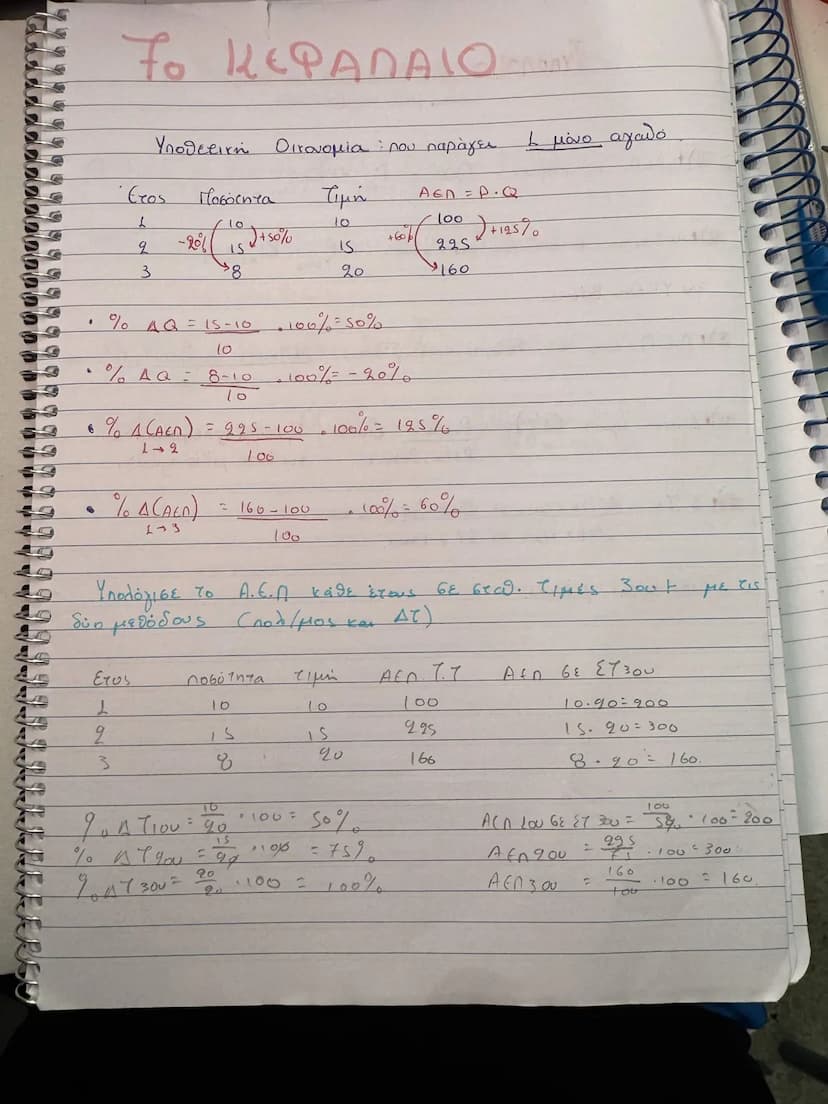 7ο ΚΕΦΑΛΑΙΟ
Υποθετική Οικονομία: που παράγει 1 μόνο αγαθό
Έτος Ποσότητα Τιμή ΑΕΠ = P·Q
1 10 10 100
2 -20% 15 +50% 15 +60% 225 +125%
3 8 20 160
• % ΔQ = 15-10 / 10 · 100% = 50%
• % ΔQ = 8-10 / 10 · 100% = -20%
• % Δ(ΑΕΠ) 1→2 = 225-100 / 100 · 100% = 125%
• % Δ(ΑΕΠ) 1→3 = 160-100 / 100 · 100% = 60%
Υπολόγισε το Α.Ε.Π κάθε έτους σε σταθ. τιμές 3ου με τις
δύο μεθόδους (πολ/μος και ΔΤ)
Ετος ποσότητα τιμή ΑΕΠ Τ.Τ ΑΕΠ σε ΣΤ 3ου
1 10 10 100 10·20=200
2 15 15 225 15·20=300
3 8 20 160 8·20=160.
% ΔΤ1ου = 10/20 · 100 = 50% ΑΕΠ 1ου σε ΣΤ 3ου = 100/50 · 100 = 200
% ΔΤ2ου = 15/20 · 100 = 75% ΑΕΠ2ου = 225/75 · 100 = 300
% ΔΤ3ου = 20/20 · 100 = 100% ΑΕΠ3ου = 160/100 · 100 = 160.